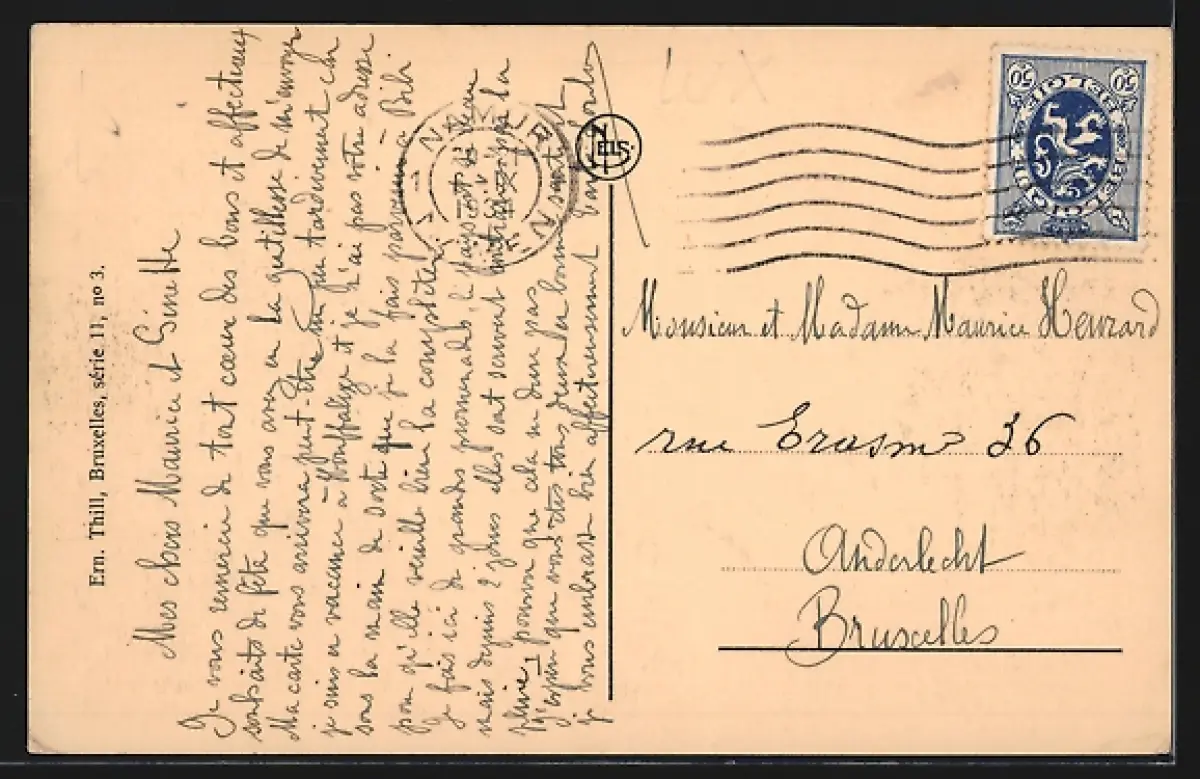 Ern. Thill, Bruxelles, série 11, no 3.
Mes chers Maurice et Ginette
Je vous remercie de tout cœur des bons et affectueux
souhaits de fête que vous avez eu la gentillesse de m'envoyer
Ma carte vous arrivera peut-être un peu tardivement car
je suis en vacances à Houffalize et je n'ai pas votre adresse
sous la main de sorte que je la fais parvenir à Bibi
pour qu'elle veuille bien la compléter.
Je fais ici de grandes promenades, le pays est beau
mais depuis 2 jours elles sont souvent par la
pluie, pourvu que cela ne dure pas
J'espère que vous êtes tous deux en bonne santé et
je vous embrasse bien affectueusement
NELS
BELGIQUE BELGIE
50 50
Monsieur et Madame Maurice Henrard
rue Erasme 36
Anderlecht
Bruxelles